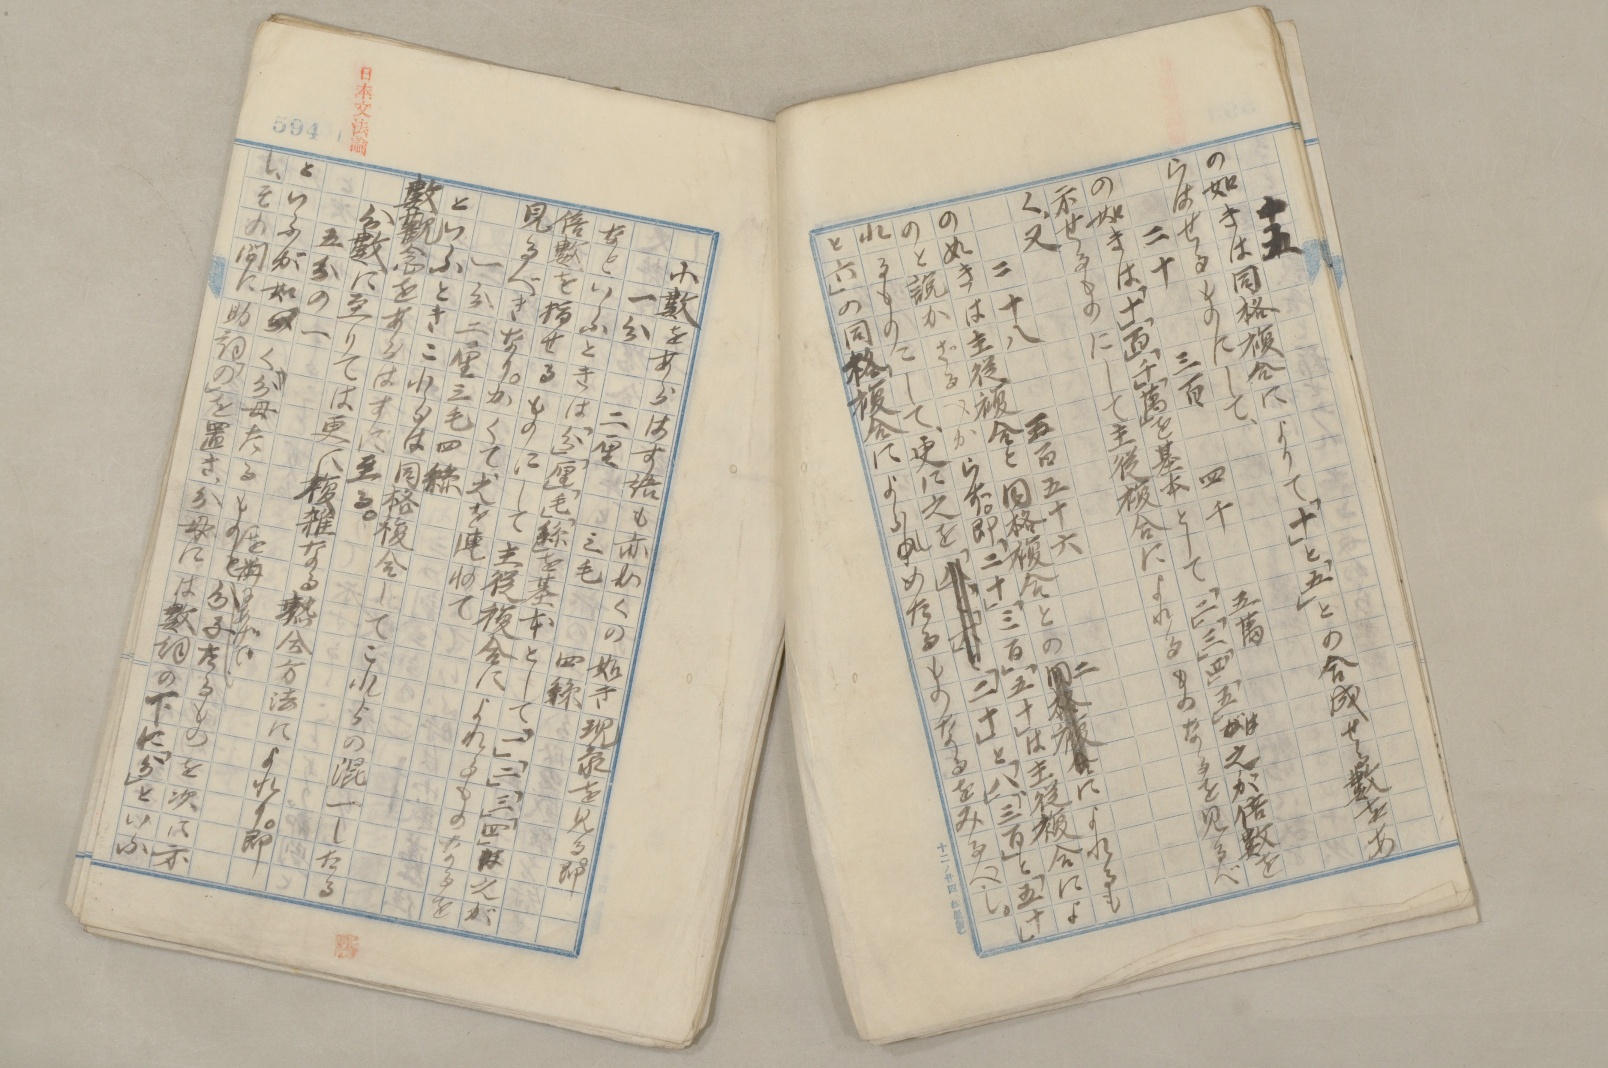 十五
の如きは同格複合によりて「十」と「五」との合成せる數をあ
らはせるものにして、
二十　三百　四千　五萬
の如きは、「十」「百」「千」「萬」を基本として「二」「三」「四」「五」は之が倍數を
示せるものにして主從複合によれるものなるを見るべ
く、又
二十八　五百五十六
の如きは主從複合と同格複合との二によれるも
のと說かざるべからず。即「二十」「三百」「五十」は主從複合によ
れるものにして、更に之を「二十」と「八」、「三百」と「五十」
と「六」の同格複合によるしめたるものなるをみるべし。
小數をあらはす語も亦かくの如き現象を見る即
一分　二厘　三毛　四絲
などいふときは「分」「厘」「毛」「絲」を基本として「一」「二」「三」「四」は之が
倍數を指せるものにして主從複合によれるものなるを
見るべきなり。かくて之を連ねて
一分二厘三毛四絲
といふときこれらは同格複合してこれらの混一したる
數觀念をあらはすに至る。
分數に至りては更に複雜なる熟合方法によれり。即
五分の一
といふが如く分母たるものと分子たるものを次に示
し、その間に助詞「の」を置き、分母には數詞の下に「分」といふ
594
日本文法論